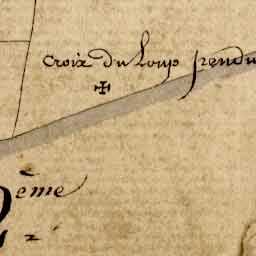 Croix du Loup pendu
2ème
2